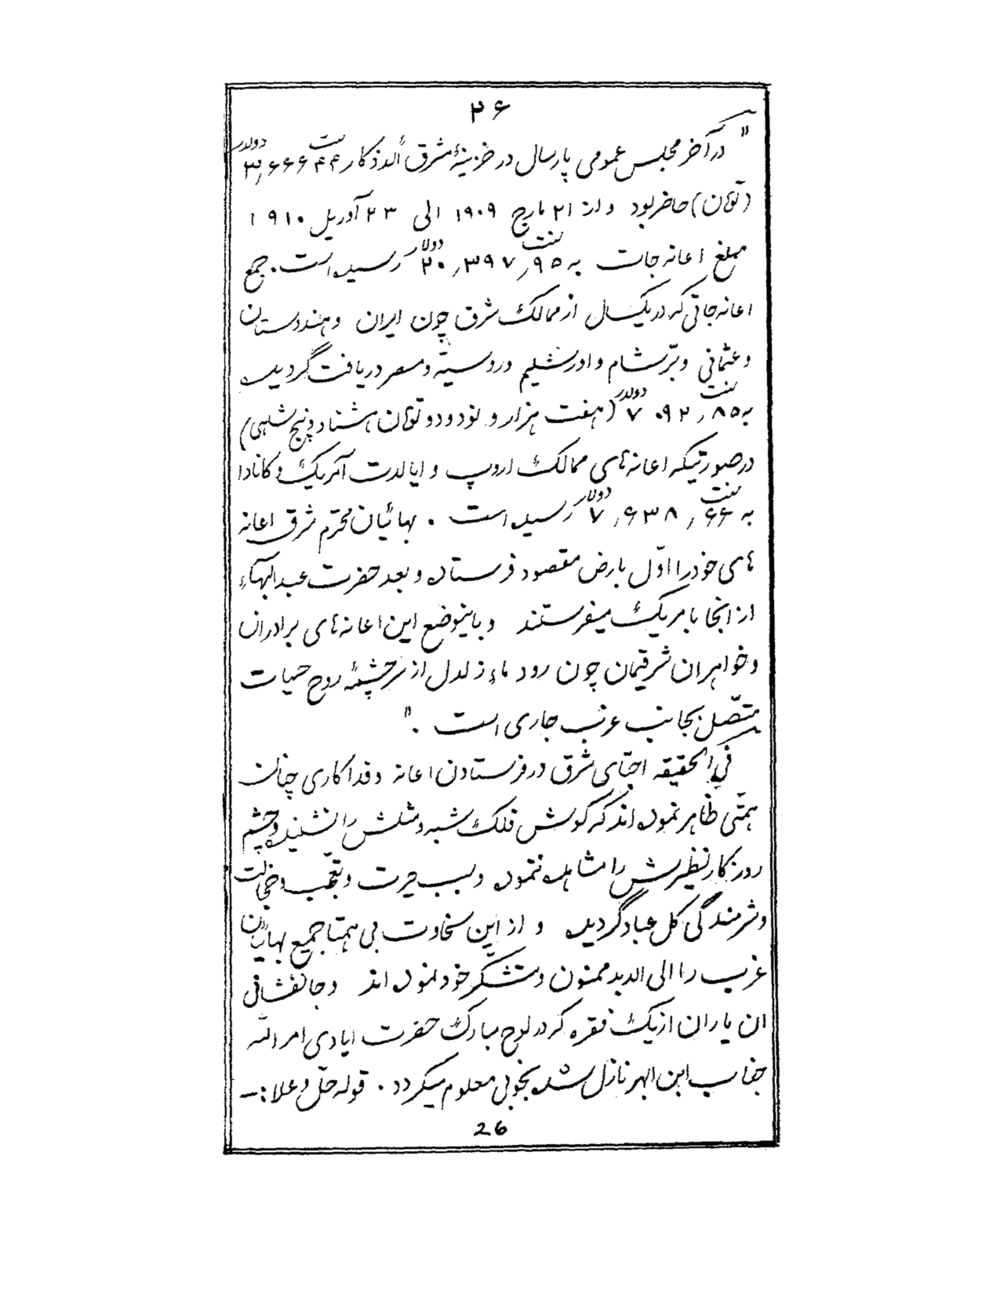 ۲۶
" در آخر مجلس عمومی پارسال در خزینهٔ مشرق الاذکار ۳٫۶۶۶ دولار ۴۴ سنت
(تومان) حاضر بود و از ۲۱ مارچ ۱۹۰۹ الی ۲۳ آوریل ۱۹۱۰
مبلغ اعانه جات به ۲۰٫۳۹۷ دولار ٫۹۵ سنت رسیده است. جمع
اعانه جاتی که در یکسال از ممالک شرق چون ایران و هندوستان
و عثمانی و برّ شام و اورشلیم و روسیّه و مصر دریافت گردیده
به ۷٬۰۹۲ دولار ٫۸۵ سنت (هفت هزار و نود و دو تومان هشتاد و پنج شاهی)
در صورتیکه اعانه های ممالک اروپ و ایالات آمریک و کانادا
به ۷٫۶۳۸ دولار ٫۶۶ سنت رسیده است . بهائیان محترم شرق اعانه
های خود را اوّل بارض مقصود فرستاده و بعد حضرت عبدالبهآء
از آنجا بامریک میفرستند و باینوضع این اعانه های برادران
و خواهران شرقیمان چون رود ماء زلال از سرچشمهٔ روح حیات
متّصل بجانب غرب جاری است . "
فی الحقیقه احبّای شرق در فرستادن اعانه و فداکاری چنان
همّتی ظاهر نموده اند که گوش فلک شبه و مثلش را نشنیده و چشم
روزگار نظیرش را مشاهده ننموده و سبب حیرت و تعجّب و خجالت
و شرمندگی کل عباد گردیده و از این سخاوت بی همتا جمیع بهائیان
غرب را الی الابد ممنون و متشکّر خود نموده اند و جانفشانی
ان یاران از یک فقره که در لوح مبارک حضرت ایادی امرالله
جناب ابن ابهر نازل شده بخوبی معلوم میگردد . قوله جلّ و علا :ـ
26